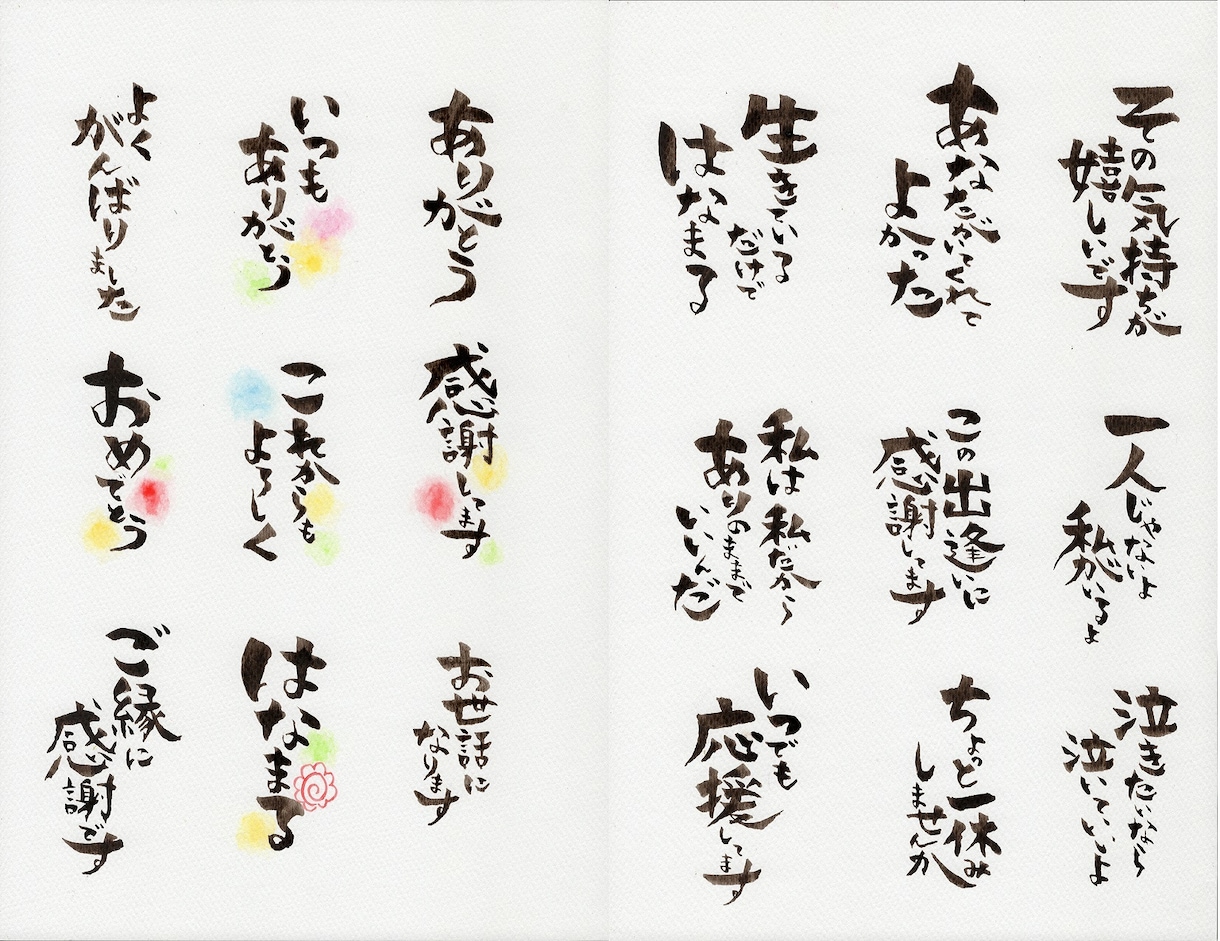 その気持ちが
嬉しいです
あなたがいてくれて
よかった
生きている
だけで
はなまる
一人じゃないよ
私がいるよ
この出逢いに
感謝してます
私は私だから
ありのままで
いいんだ
泣きたいなら
泣いていいよ
ちょっと一休み
しませんか
いつでも
応援してます
ありがとう
いつも
ありがとう
よく
がんばりました
感謝してます
これからも
よろしく
おめでとう
お世話に
なります
はなまる
ご縁に
感謝です